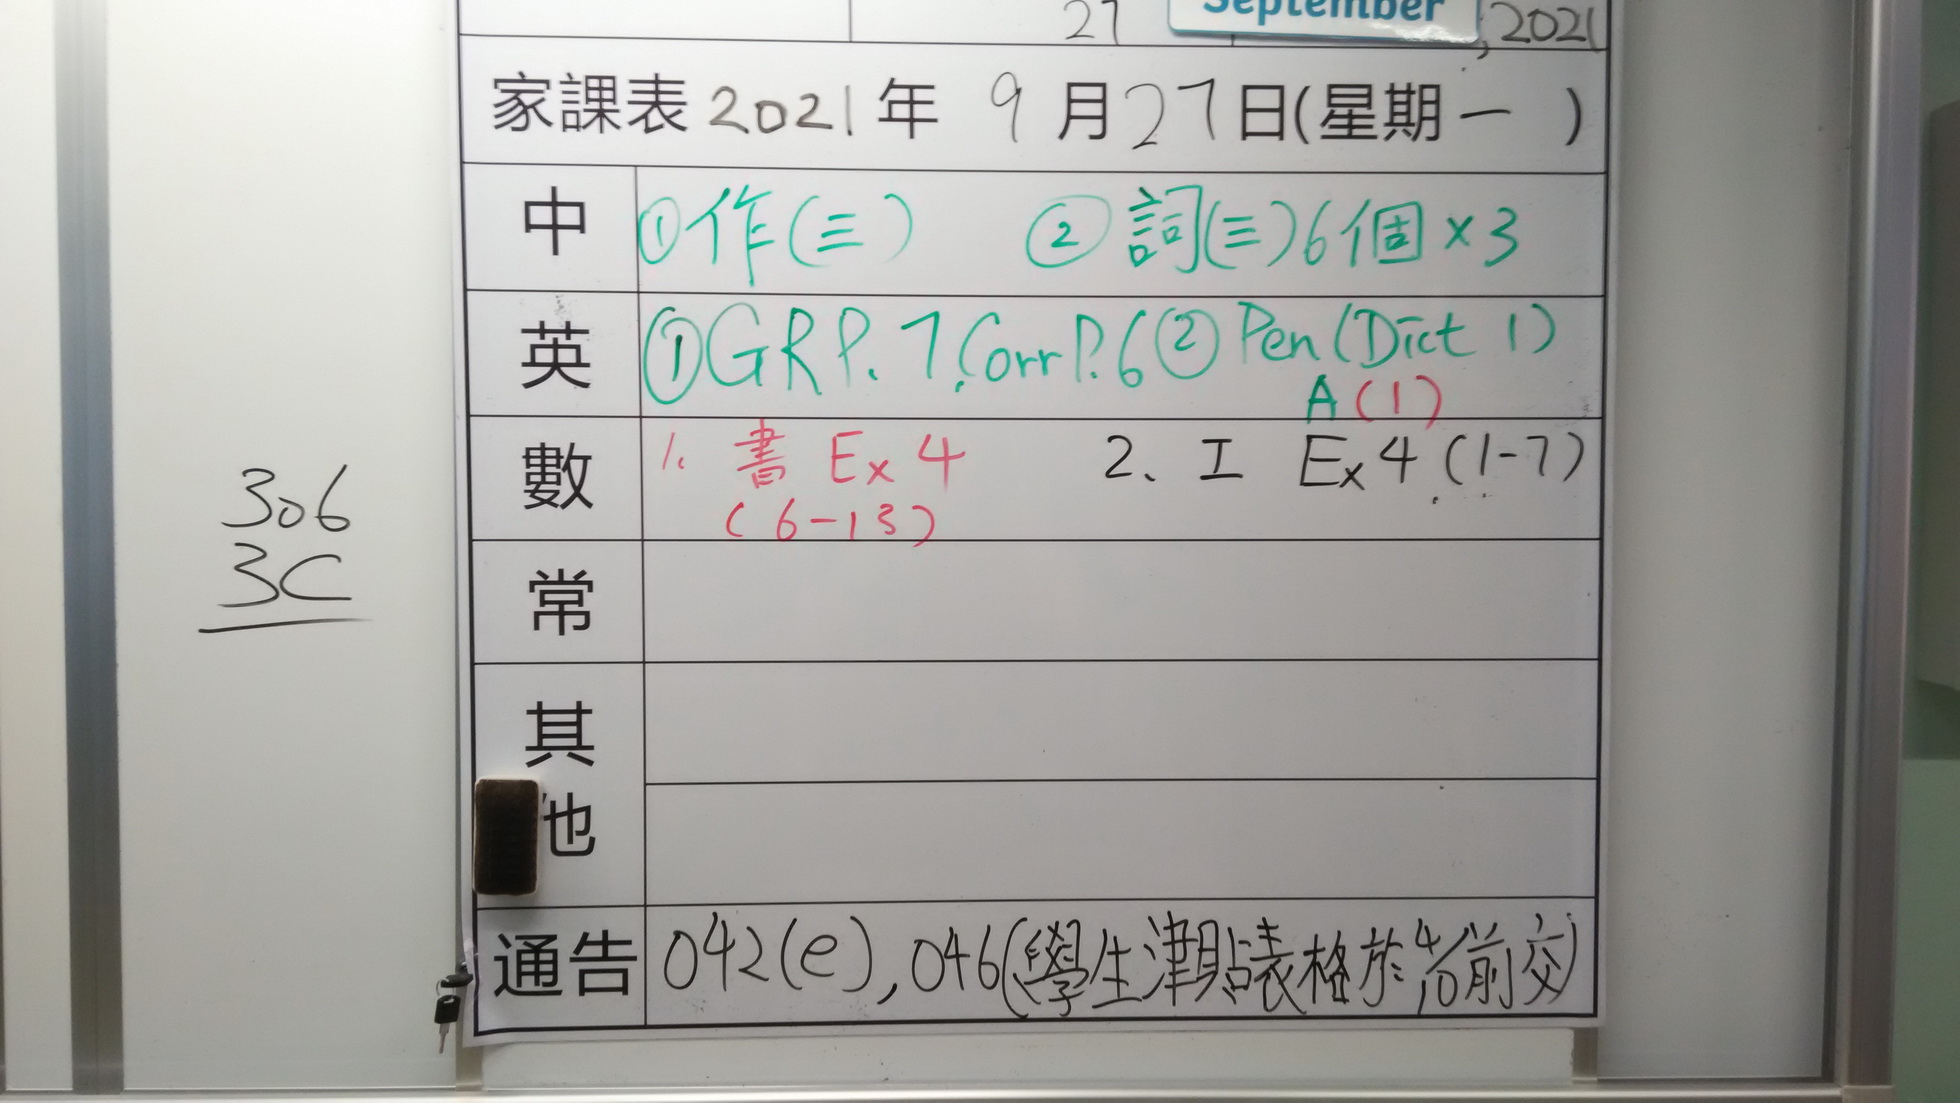 27 September, 2021
家課表 2021 年 9 月 27 日(星期一 )
中 ①作(三) ②詞(三)6個×3
英 ①GR P.7, Corr P.6 ② Pen (Dict 1)
A (1)
數 1. 書 Ex 4 2、工 Ex 4 (1-7)
(6-13)
306
3C
常
其
他
通告 042(e), 046(學生津貼表格於4/10前交)